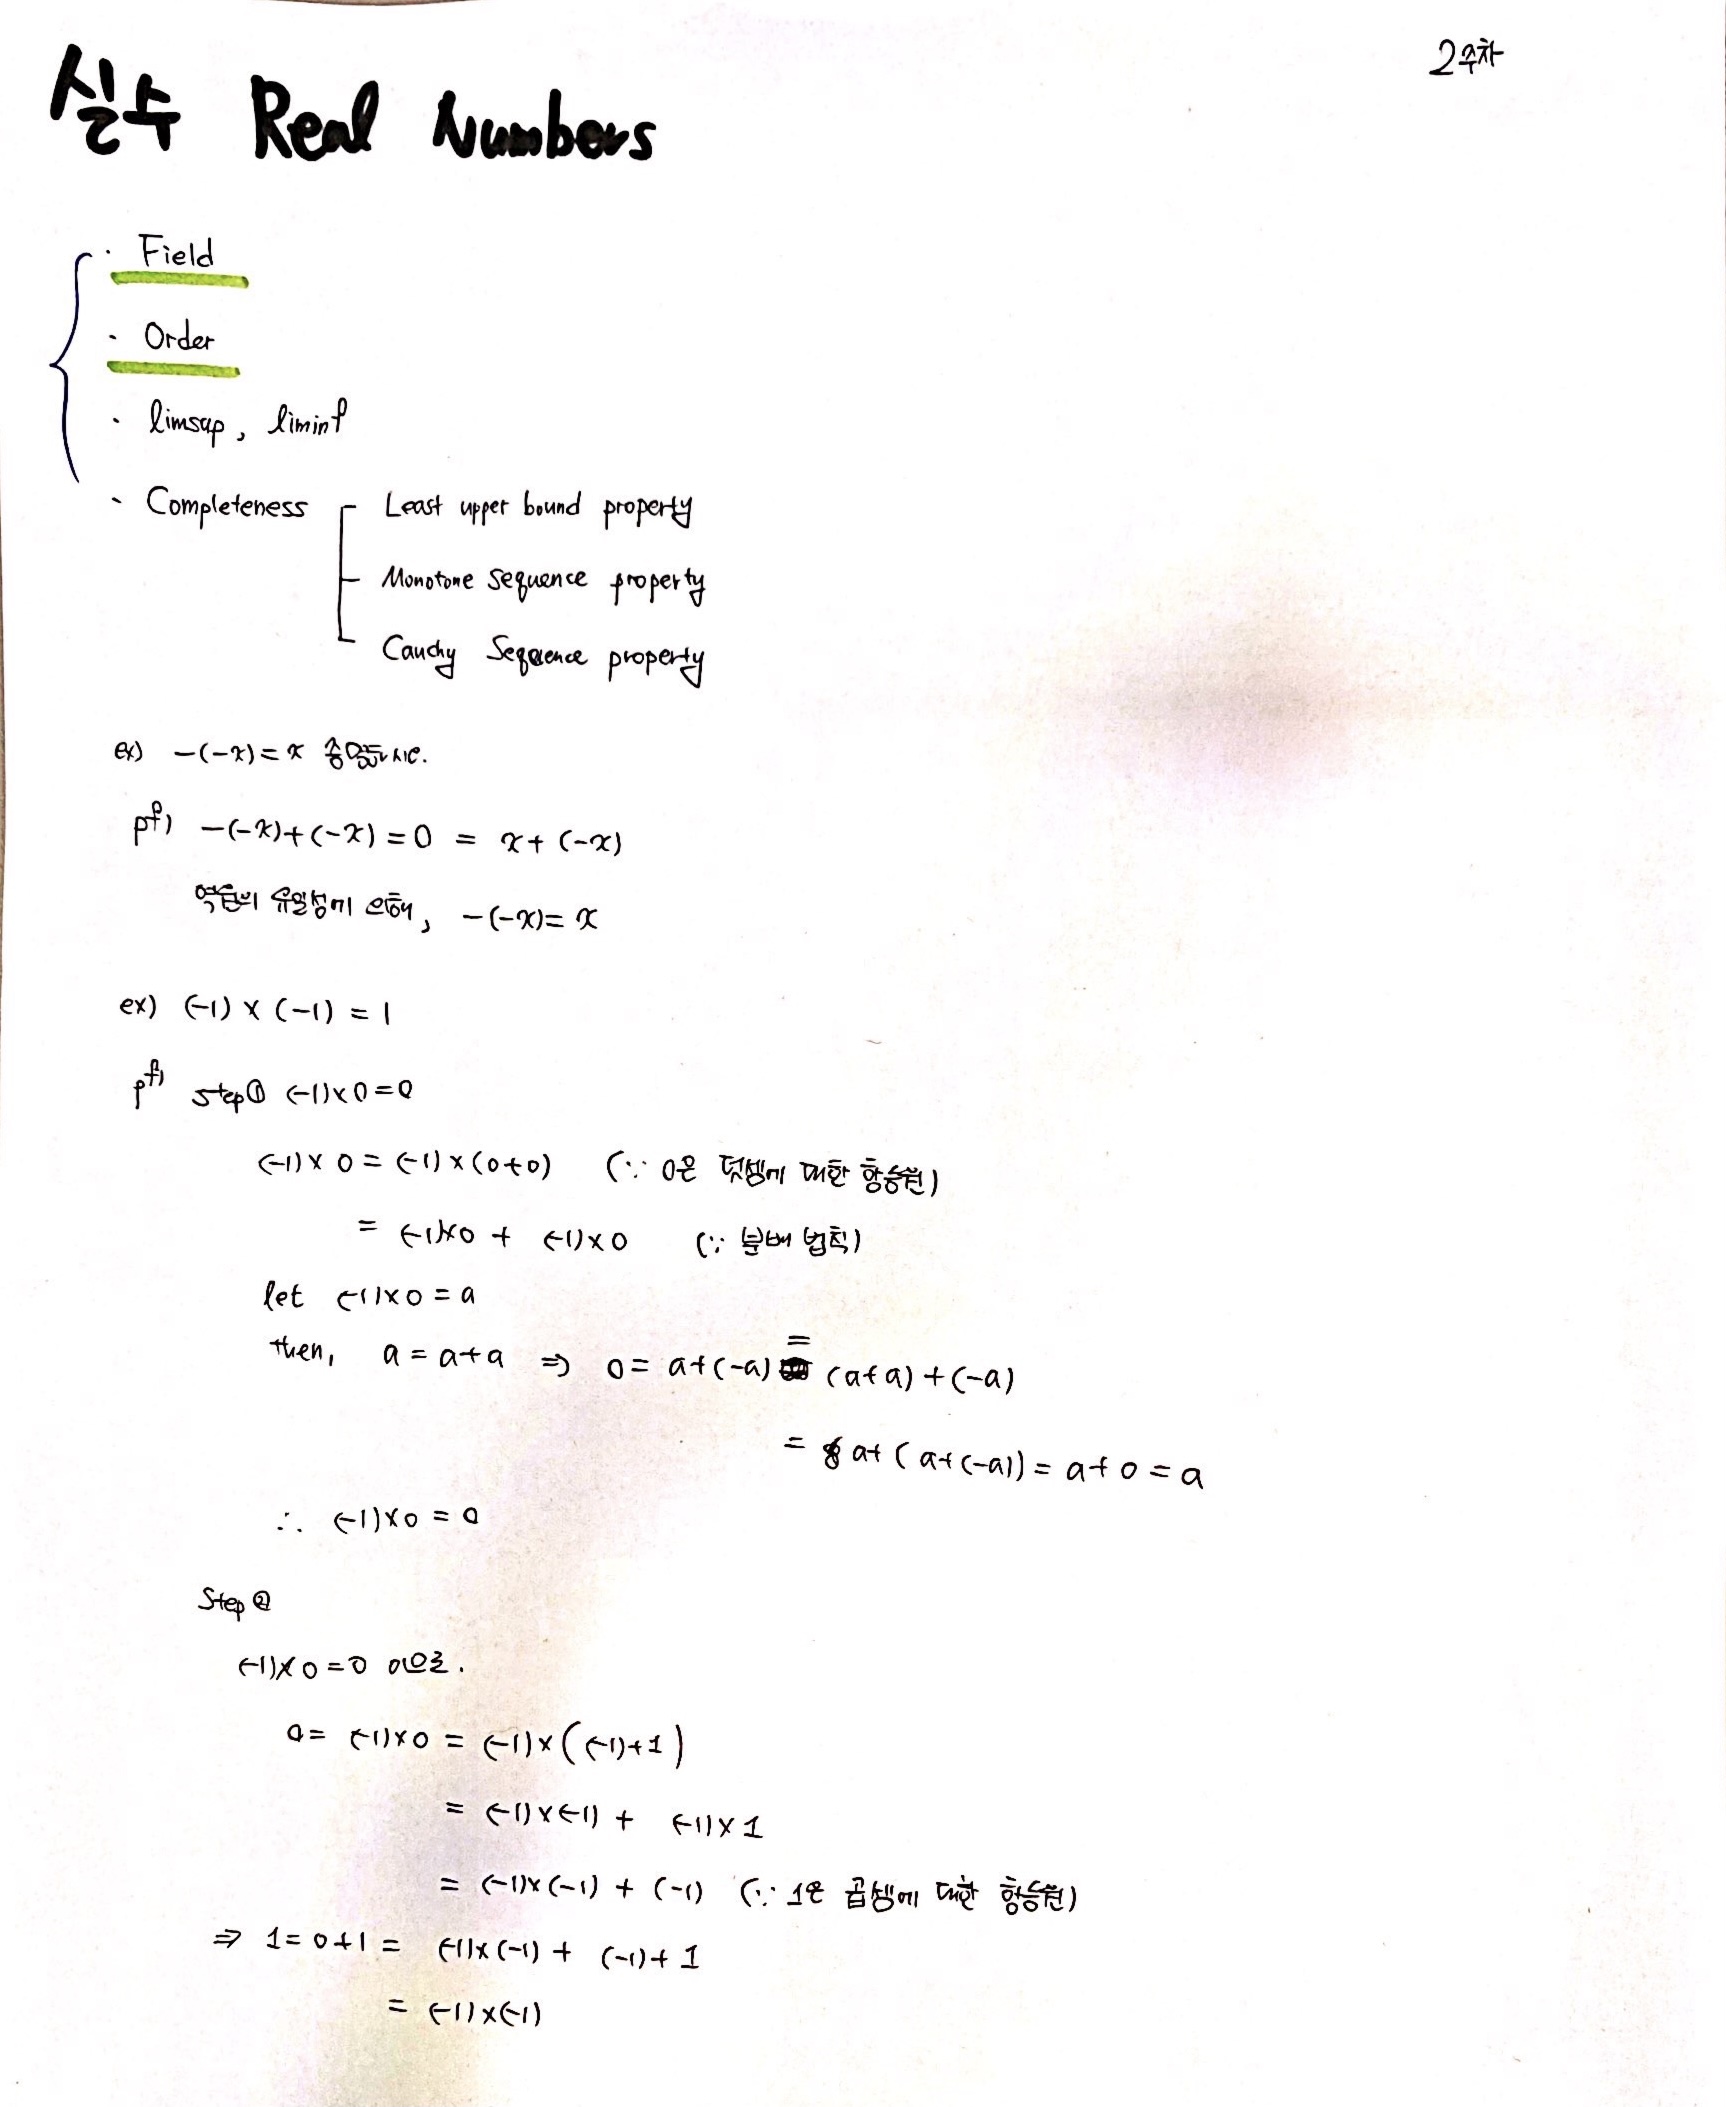 2주차
실수 Real Numbers
· Field
· Order
· limsup, liminf
· Completeness
Least upper bound property
Monotone sequence property
Cauchy Sequence property
ex) -(-x)=x 증명하시오.
pf) -(-x)+(-x)=0 = x+(-x)
역원의 유일성에 의해, -(-x)=x
ex) (-1)×(-1)=1
pf) step① (-1)×0=0
(-1)×0=(-1)×(0+0) (∵ 0은 덧셈에 대한 항등원)
= (-1)×0 + (-1)×0 (∵ 분배 법칙)
let (-1)×0=a
then, a=a+a ⇒ 0=a+(-a) = (a+a)+(-a)
= a+(a+(-a))=a+0=a
∴ (-1)×0=0
Step②
(-1)×0=0 이므로.
0= (-1)×0 = (-1)×((-1)+1)
= (-1)×(-1) + (-1)×1
= (-1)×(-1) + (-1) (∵ 1은 곱셈에 대한 항등원)
⇒ 1=0+1= (-1)×(-1) + (-1)+1
= (-1)×(-1)